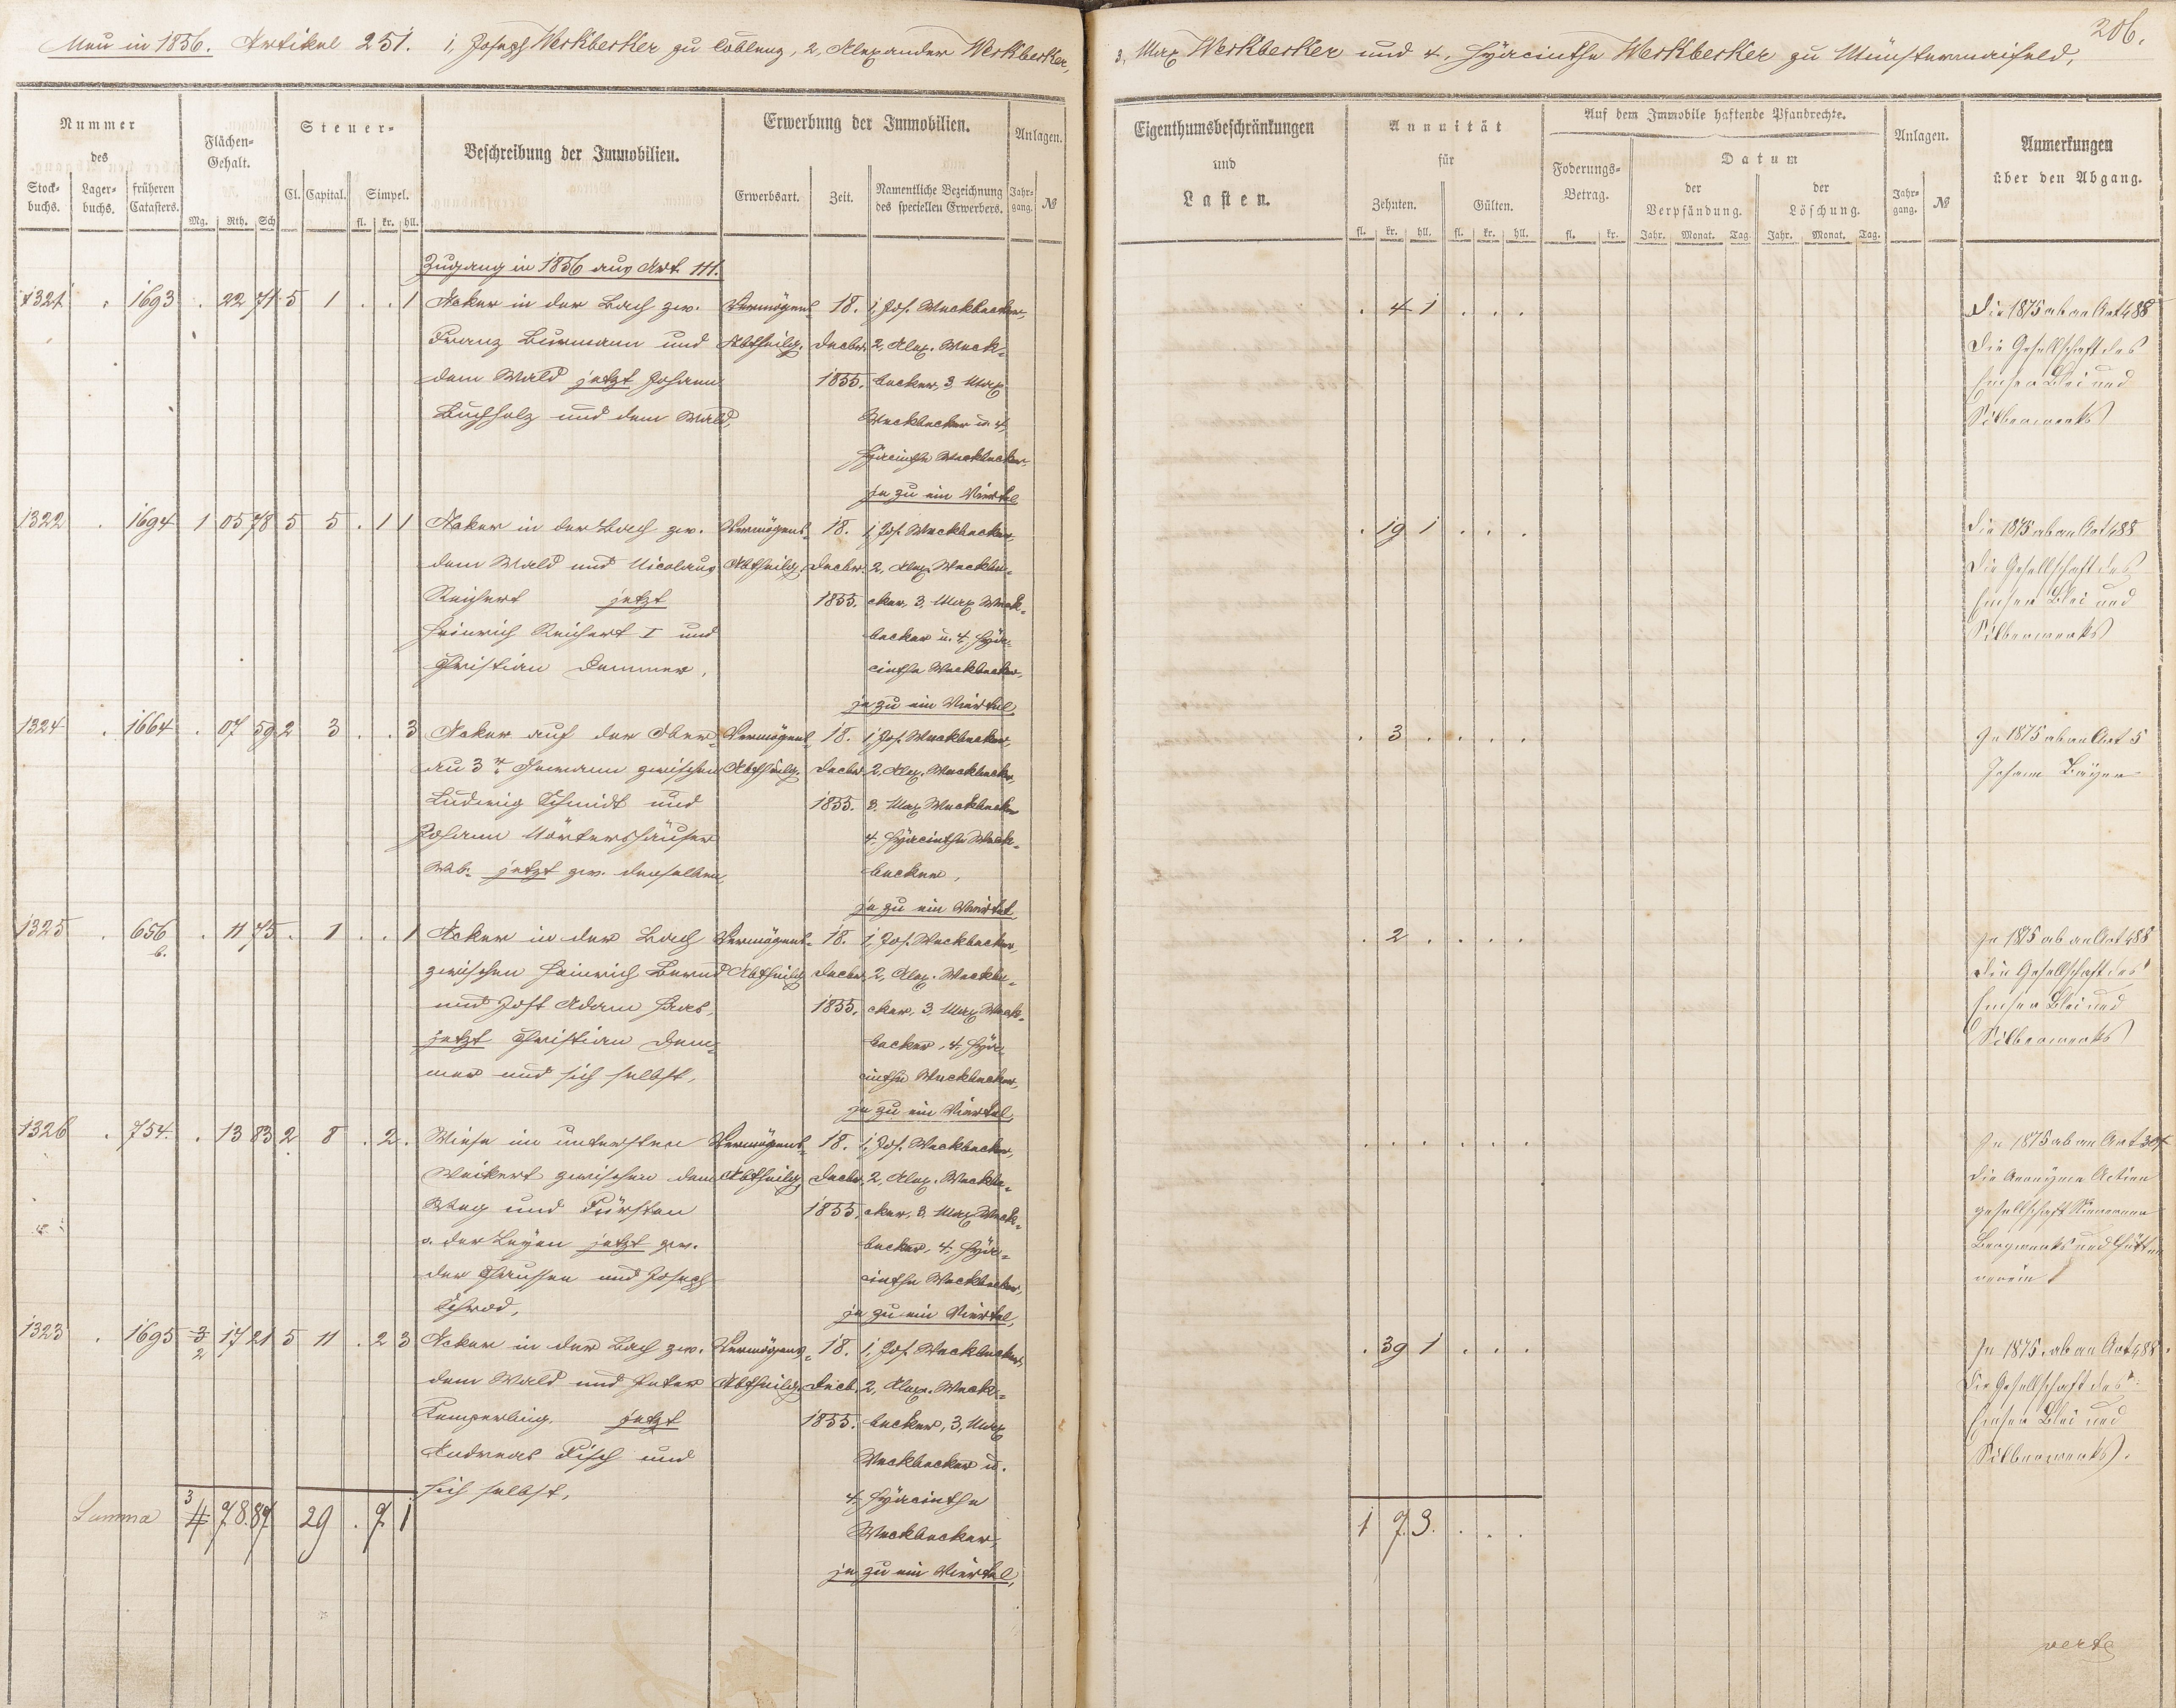 206.
Neu in 1856. Artikel 251. 1, Joseph Weckbecker zu Coblenz, 2, Alexander Weckbecker, 3, Max Weckbecker und 4, Hyacinthe Weckbecker zu Münstermaifeld,
Nummer des
Stock-buchs. Lager-buchs. früheren Catasters.
Flächen-Gehalt.
Mg. Rth. Sch
Steuer-
Cl. Capital. Simpel.
fl. kr. hll.
Beschreibung der Immobilien.
Erwerbung der Immobilien.
Erwerbsart. Zeit. Namentliche Bezeichnung des speciellen Erwerbers.
Anlagen.
Jahr-gang. №
Eigenthumsbeschränkungen
und
Lasten.
Annuität
für
Zehnten. Gülten.
fl. kr. hll. fl. kr. hll.
Auf dem Immobile haftende Pfandrechte.
Foderungs-Betrag.
fl. kr.
Datum
der Verpfändung. der Löschung.
Jahr. Monat. Tag. Jahr. Monat. Tag.
Anlagen.
Jahr-gang. №
Anmerkungen
über den Abgang.
Zugang in 1856 aus Art. 111.
1321 . 1693 . 22 71 5 1 . . 1 Acker in der Bach zw. Vermögens- 18. 1, Jos. Weckbecker, . 4 1 . . . In 1875 ab an Art 488
Franz Burmann und Abtheilg. Decbr. 2, Alex. Weck- die Gesellschaft des
dem Wald jetzt Johann 1855. becker, 3, Max Emser Blei und
Buchholz und dem Wald, Weckbecker u. 4, Silberwerks
Hyacinthe Weckbecker,
je zu ein Viertel
1322 . 1694 1 05 78 5 5 . 1 1 Acker in der Bach zw. Vermögens- 18. 1, Jos. Weckbecker, . 19 1 . . . In 1875 ab an Art 488
dem Wald und Nicolaus Abtheilg. Decbr. 2, Alex. Weckbe- die Gesellschaft des
Reichert jetzt 1855. cker, 3, Max Weck- Emser Blei und
Heinrich Reichert I und becker u. 4, Hya- Silberwerks
Christian Demmer, cinthe Weckbecker,
je zu ein Viertel
1324 . 1664 . 07 59 2 3 . . 3 Acker auf der Ober- Vermögens- 18. 1, Jos. Weckbecker, . 3 . . . . In 1875 ab an Art 5
au 3r Gewann zwischen Abtheilg. Decbr. 2, Alex. Weckbecker, Johann Bayer
Ludwig Schmidt und 1855. 3, Max Weckbecker
Johann Mörtershäuser 4, Hyacinthe Weck-
Wb. jetzt zw. denselben, becker,
je zu ein Viertel
1325 . 656 b. . 11 75 . 1 . . 1 Acker in der Bach Vermögens- 18. 1, Jos. Weckbecker, . 2 . . . . In 1875 ab an Art 488
zwischen Heinrich Bernd Abtheilg. Decbr. 2, Alex. Weckbe- die Gesellschaft des
und Jost Adam Haas, 1855, cker, 3, Max Weck- Emser Blei und
jetzt Christian Dem- becker, 4, Hya- Silberwerks
mer und sich selbst, cinthe Weckbecker,
je zu ein Viertel,
1326 . 754. . 13 83 2 8 . 2 . Wiese im untersten Vermögens- 18. 1, Jos. Weckbecker, . . . . . . In 1875 ab an Art 304
Weikert zwischen dem Abtheilg. Decbr. 2, Alex. Weckbe- die Anonyme Actien
Weg und Fürsten 1855, cker, 3, Max Weck- gesellschaft
v. der Leyen jetzt zw. becker, 4, Hya- Bergwerks und Hütten
der Chaussee und Joseph cinthe Weckbecker, verein
Schrod, je zu ein Viertel,
1323 . 1695 3 2 17 21 5 11 . 2 3 Acker in der Bach zw. Vermögens- 18. 1, Jos. Weckbecker, . 39 1 . . . In 1875. ab an Art 488.
dem Wald und Peter Abtheilg. Decb. 2, Alex. Weck- die Gesellschaft des
Kemperling. jetzt 1855. becker, 3, Max Emser Blei und
Andreas Fisch und Weckbecker u. Silberwerks.
sich selbst, 4, Hyacinthe
Weckbecker,
je zu ein Viertel,
Summa 3 4 78. 87 29 . 7 1 1 7 3. . . .
verte